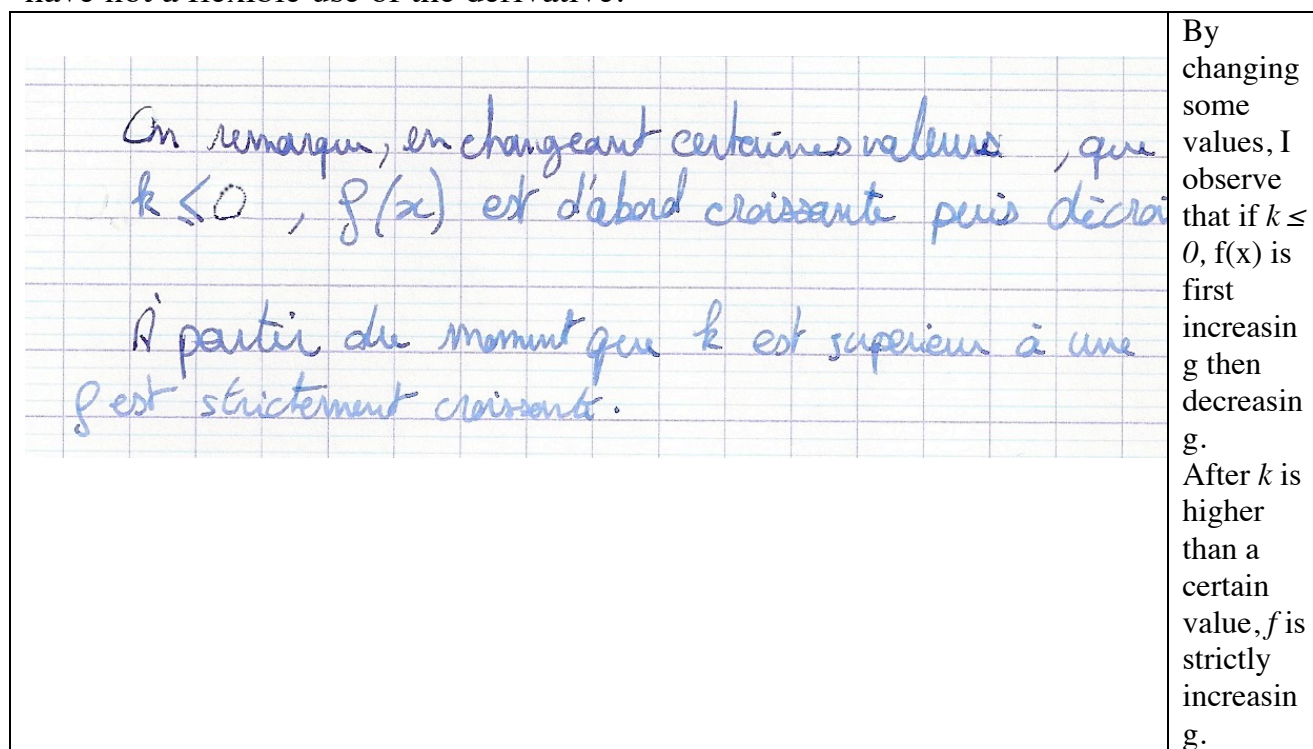 have not a flexible use of the derivative.
On remarque, en changeant certaines valeurs, que
k ≤ 0, f(x) est d'abord croissante puis décroi
À partir du moment que k est superieur à une
f est strictement croissante.
By
changing
some
values, I
observe
that if k ≤
0, f(x) is
first
increasin
g then
decreasin
g.
After k is
higher
than a
certain
value, f is
strictly
increasin
g.